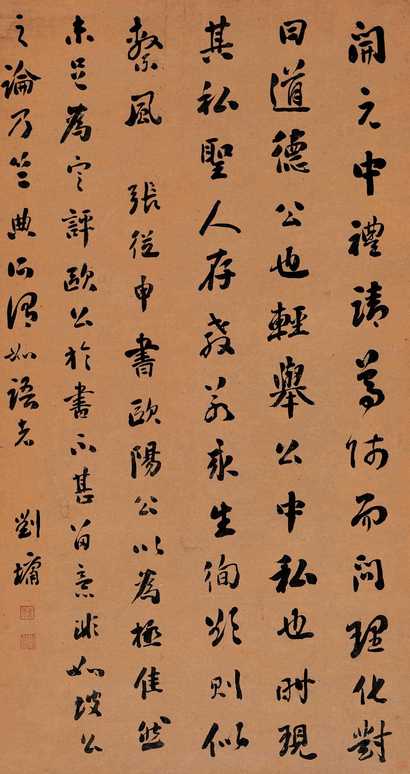 開元中禮請尊師而問理化對
曰道德公也輕舉公中私也時現
其私聖人存教若求生徇欲則似
繫風 張從申書歐陽公以為極佳然
未足為定評歐公於書不甚留意非如坡公
之論乃竺典所謂如語者 劉墉